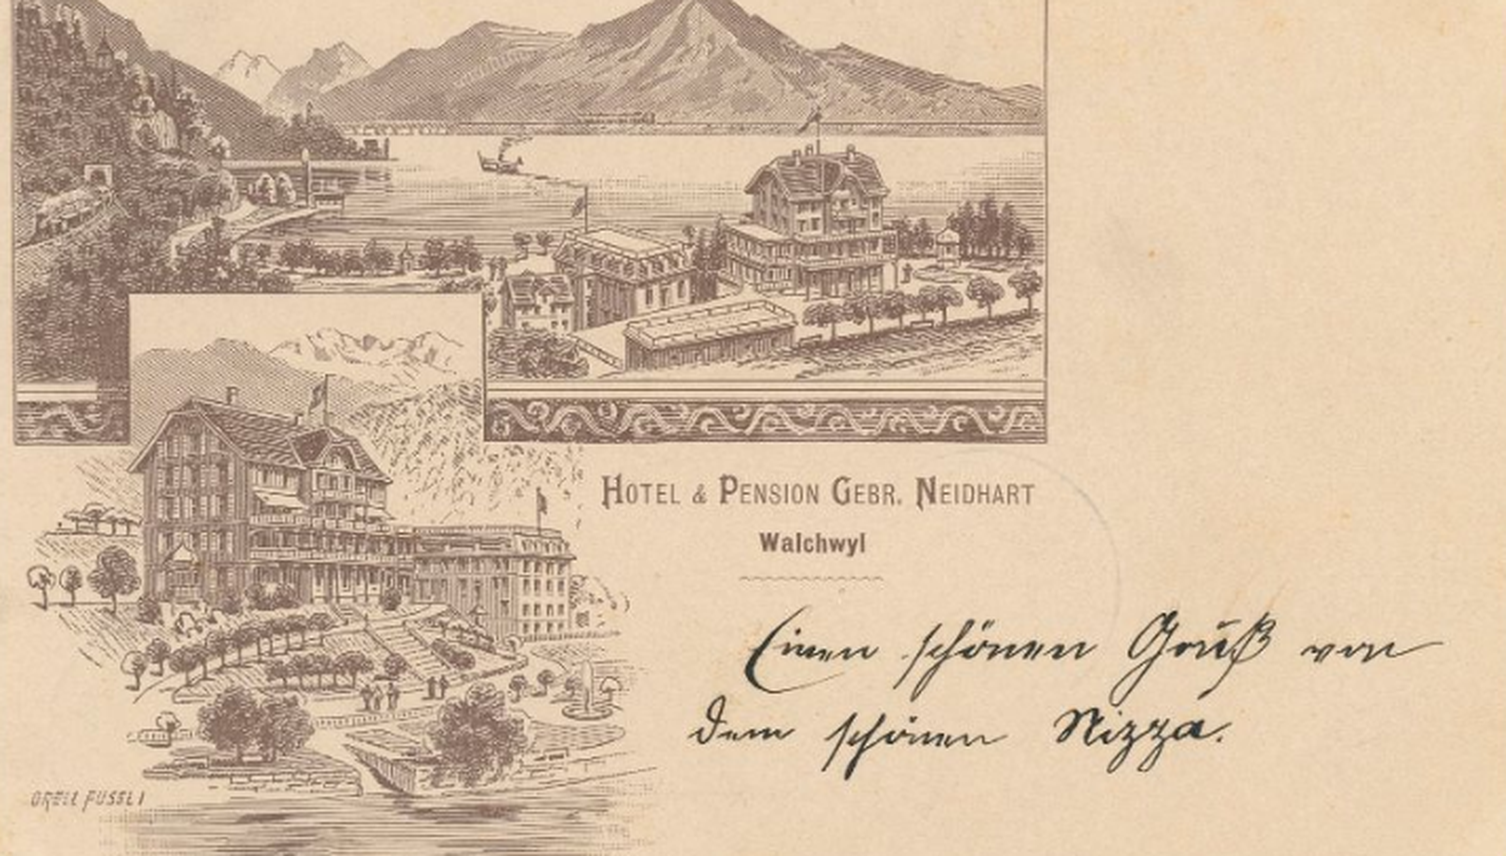 HOTEL & PENSION GEBR. NEIDHART
Walchwyl
Einen schönen Gruß von
dem schönen Nizza.
ORELL FUSSLI